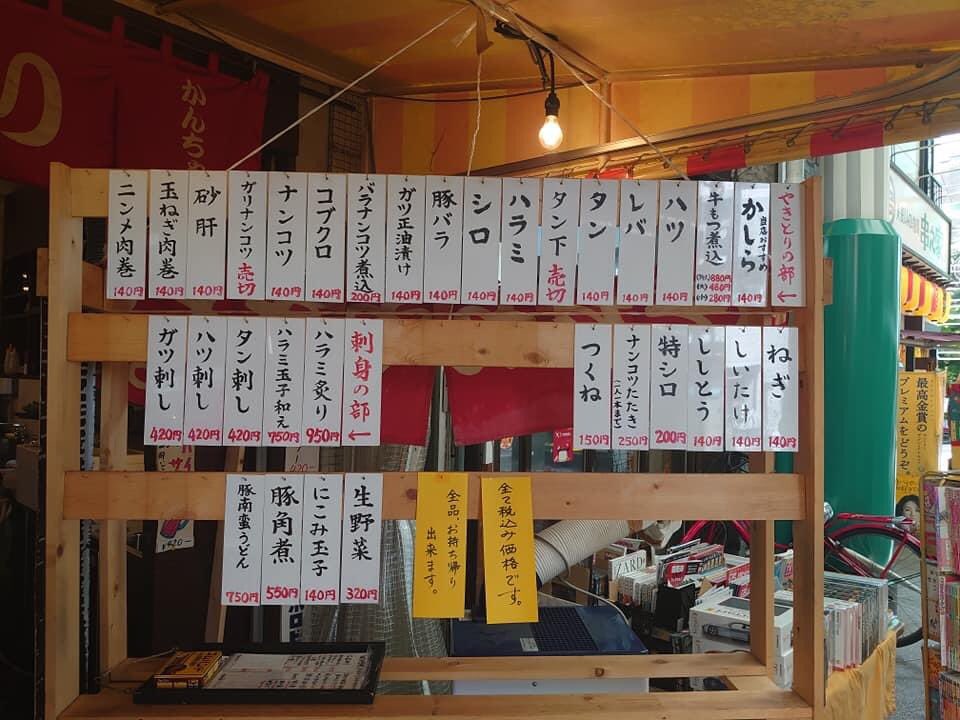 やきとりの部
当店おすすめ
かしら
140円
牛もつ煮込
880円
480円
280円
ハツ
140円
レバ
140円
タン
140円
タン下
売切
ハラミ
140円
シロ
140円
豚バラ
140円
ガツ正油漬け
140円
バラナンコツ煮込
200円
コブクロ
140円
ナンコツ
140円
ガリナンコツ
売切
砂肝
140円
玉ねぎ肉巻
140円
ニンメ肉巻
140円
ねぎ
140円
しいたけ
140円
ししとう
140円
特シロ
200円
ナンコツたたき
(一人一本まで)
250円
つくね
150円
刺身の部
ハラミ炙り
950円
ハラミ玉子和え
750円
タン刺し
420円
ハツ刺し
420円
ガツ刺し
420円
全て税込み価格です。
全品、お持ち帰り
出来ます。
生野菜
320円
にこみ玉子
140円
豚角煮
550円
豚南蛮うどん
750円
かんち
り
最高金賞の
プレミアムをどうぞ。
ZARD